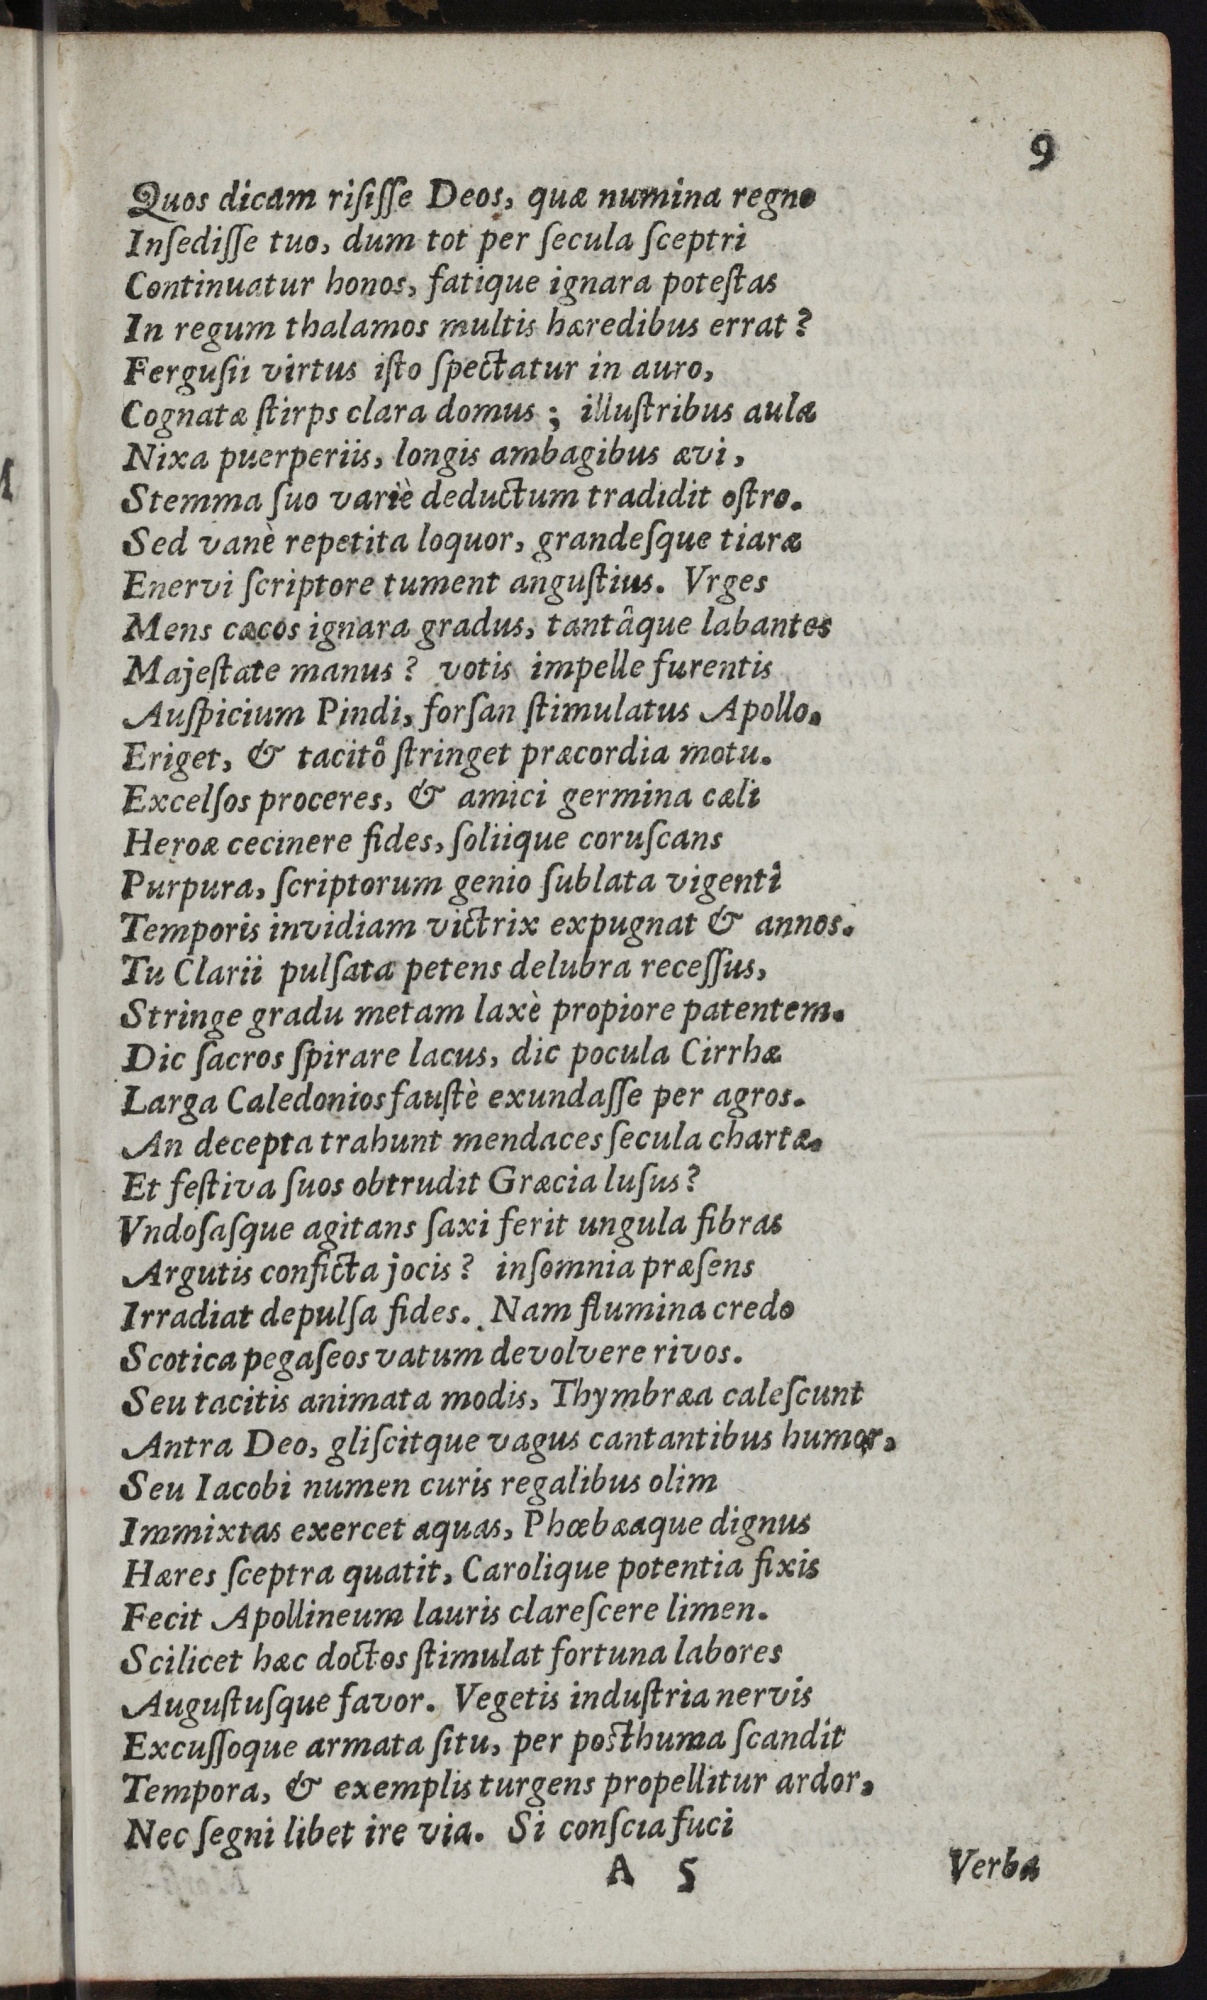 9
Quos dicam risiſſe Deos, quæ numina regno
Inſediſſe tuo, dum tot per ſecula ſceptri
Continuatur honos, fatique ignara poteſtas
In regum thalamos multis hæredibus errat?
Ferguſii virtus iſto ſpectatur in auro,
Cognatæ ſtirps clara domus; illuſtribus aulæ
Nixa puerperiis, longis ambagibus ævi,
Stemma ſuo variè deductum tradidit oſtro.
Sed vanè repetita loquor, grandeſque tiaræ
Enervi ſcriptore tument anguſtius. Vrges
Mens cæcos ignara gradus, tantâque labantes
Majeſtate manus? votis impelle furentis
Auſpicium Pindi, forſan ſtimulatus Apollo.
Eriget, & tacitô ſtringet præcordia motu.
Excelſos proceres, & amici germina cæli
Heroæ cecinere fides, ſoliique coruſcans
Purpura, ſcriptorum genio ſublata vigenti
Temporis invidiam victrix expugnat & annos.
Tu Clarii pulſata petens delubra receſſus,
Stringe gradu metam laxè propiore patentem.
Dic ſacros ſpirare lacus, dic pocula Cirrhæ
Larga Caledonios fauſtè exundaſſe per agros.
An decepta trahunt mendaces ſecula chartæ.
Et feſtiva ſuos obtrudit Græcia luſus?
Vndoſaſque agitans ſaxi ferit ungula fibras
Argutis conficta jocis? inſomnia præſens
Irradiat depulſa fides. Nam flumina credo
Scotica pegaſeos vatum devolvere rivos.
Seu tacitis animata modis, Thymbræa caleſcunt
Antra Deo, gliſcitque vagus cantantibus humor,
Seu Iacobi numen curis regalibus olim
Immixtas exercet aquas, Phœbæaque dignus
Hæres ſceptra quatit, Carolique potentia fixis
Fecit Apollineum lauris clareſcere limen.
Scilicet hæc doctos ſtimulat fortuna labores
Auguſtuſque favor. Vegetis induſtria nervis
Excuſſoque armata ſitu, per poſthuma ſcandit
Tempora, & exemplis turgens propellitur ardor,
Nec ſegni libet ire via. Si conſcia fuci
A 5
Verba